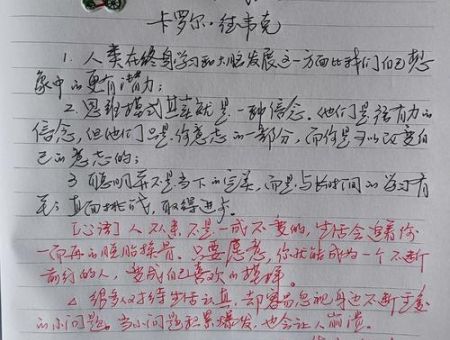 卡罗尔·德韦克
1. 人类在终身学习和大脑发展这一方面比我们自己想
象中的更有潜力;
2. 思维模式其实就是一种信念。他们是强有力的
信念,但他们只是你意志的一部分,而你是可以改变自
己的意志的;
3 聪明并不是当下的完美,而是与长时间的学习有
关:直面挑战,取得进步。
[心语] 人从来不是一成不变的,生活会追着你
一而再的脱胎换骨。只要愿意,你就能成为一个不断
前行的人,变成自己喜欢的模样。
很多人对待生活认真,却容易忽视身边不断
的小问题。当小问题积累爆发,也会让人崩溃。